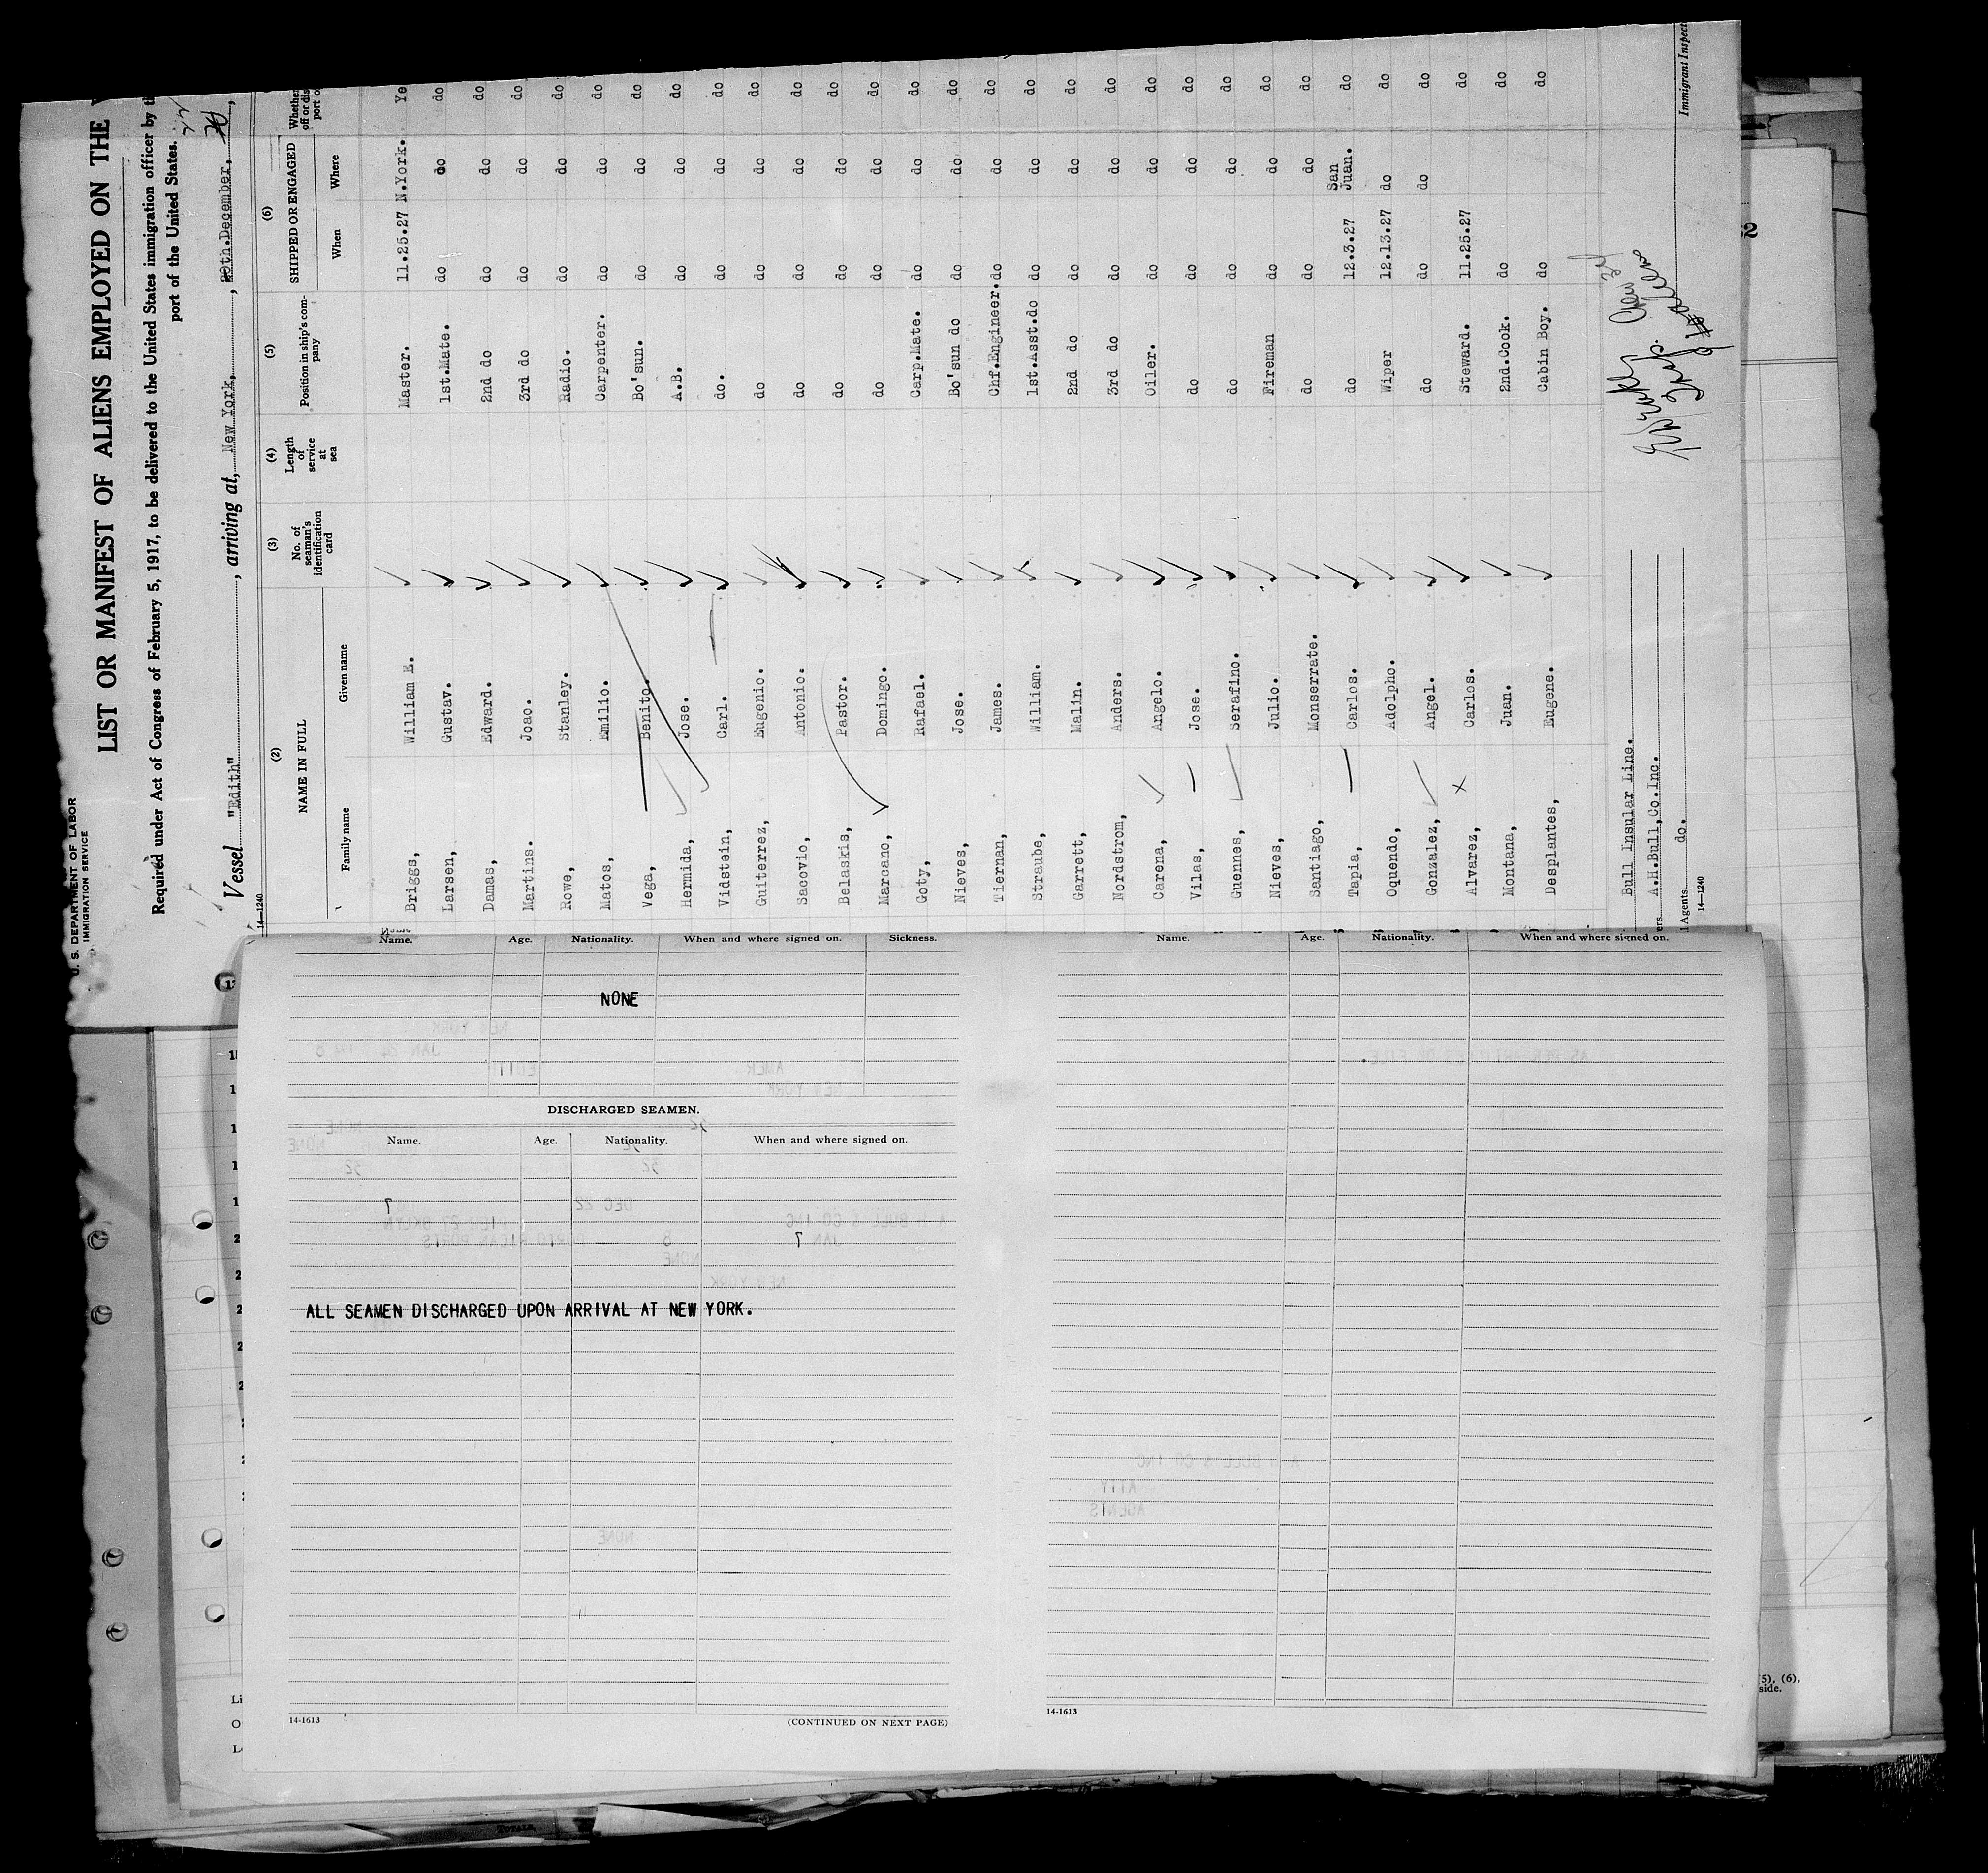 U. S. DEPARTMENT OF LABOR
IMMIGRATION SERVICE
LIST OR MANIFEST OF ALIENS EMPLOYED ON THE
Required under Act of Congress of February 5, 1917, to be delivered to the United States immigration officer by
port of the United States.
Vessel "Edith", arriving at, New York, 20th.December,
14—1240
(2) (3) (4) (5) (6)
NAME IN FULL No. of seaman's identification card Length of service at sea Position in ship's company SHIPPED OR ENGAGED
Family name Given name When Where
Briggs, William E. Master. 11.25.27 N.York. Ye
Larsen, Gustav. 1st.Mate. do do do
Damas, Edward. 2nd do do do do
Martins. Joao. 3rd do do do do
Rowe, Stanley. Radio. do do do
Matos, Emilio. Carpenter. do do do
Vega, Benito. Bo'sun. do do do
Hermida, Jose. A.B. do do do
Vidstein, Carl. do. do do do
Guiterrez, Eugenio. do do do do
Sacovio, Antonio. do do do do
Belaskis, Pastor. do do do do
Marcano, Domingo. do do do do
Goty, Rafael. Carp.Mate. do do do
Nieves, Jose. Bo'sun do do do do
Tiernan, James. Chf.Engineer. do do do
Straube, William. 1st.Asst.do do do do
Garrett, Malin. 2nd do do do do
Nordstrom, Anders. 3rd do do do do
Carena, Angelo. Oiler. do do do
Vilas, Jose. do do do do
Guennes, Serafino. do do do do
Nieves, Julio. Fireman do do do
Santiago, Monserrate. do do do do
Tapia, Carlos. do 12.3.27 San Juan. do
Oquendo, Adolpho. Wiper 12.13.27 do do
Gonzalez, Angel. do do do do
Alvarez, Carlos. Steward. 11.25.27 do
Montana, Juan. 2nd.Cook. do do
Desplantes, Eugene. Cabin Boy. do do
Bull Insular Line.
A.H.Bull,Co.Inc.
Agents do.
14—1240
Immigrant Inspec
Name. Age. Nationality. When and where signed on. Sickness.
NONE
DISCHARGED SEAMEN.
Name. Age. Nationality. When and where signed on.
ALL SEAMEN DISCHARGED UPON ARRIVAL AT NEW YORK.
14-1613
(CONTINUED ON NEXT PAGE)
Name. Age. Nationality. When and where signed on.
14-1613
(5), (6),
side.
TOTALS,